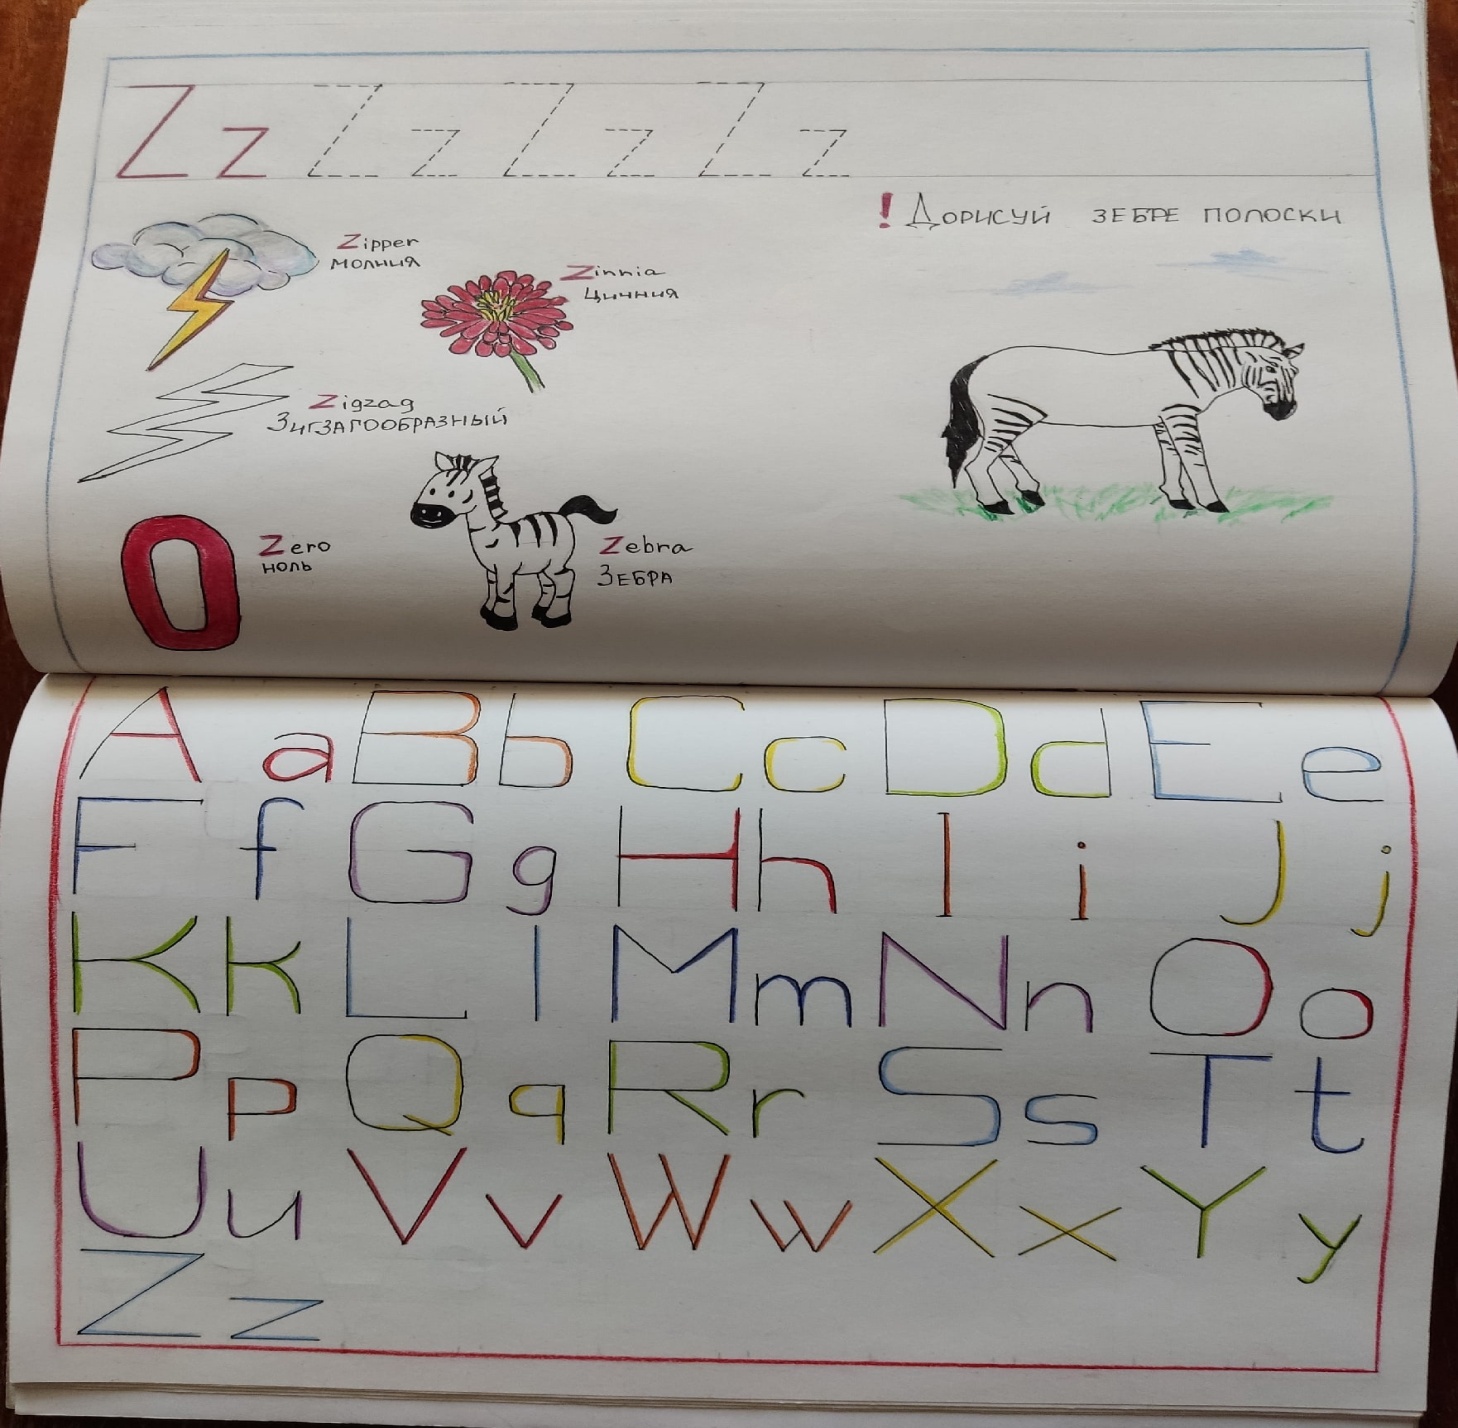 Z z Z z Z z Z z
! Дорисуй зебре полоски
Zipper
молния
Zinnia
Цинния
Zigzag
Зигзагообразный
Zero
ноль
Zebra
Зебра
A a B b C c D d E e
F f G g H h I i J j
K k L l M m N n O o
P p Q q R r S s T t
U u V v W w X x Y y
Z z